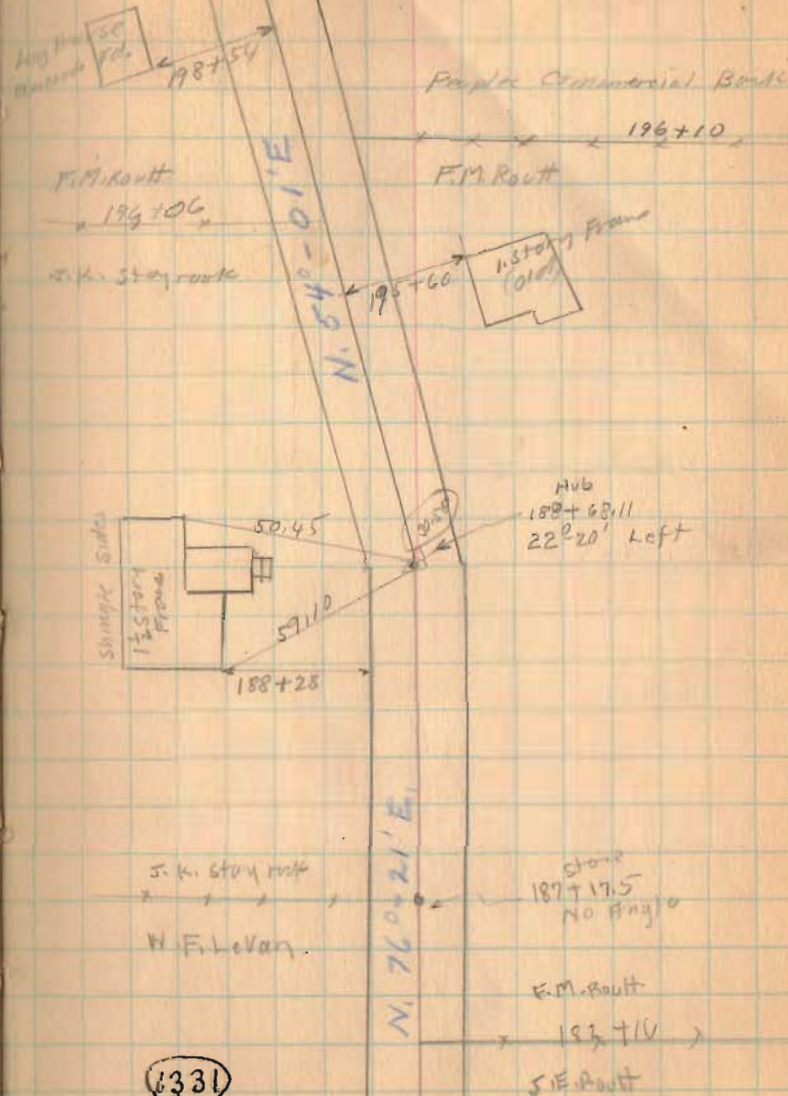 198+54
Peoples Commercial Bank
196+10
F.M. Routt
F.M. Routt
J.K. Stayrook
N. 54°-01' E
195+60
1. Story Frame
(old)
Hub
188+68.11
22°-20' Left
50.45
59.10
Shingle Sides
1½ Story
Frame
188+28
J.K. Stayrook
W.F. LeVan.
N. 76°-21' E.
Stone
187+17.5
No Angle
F.M. Routt
J.E. Routt
6331